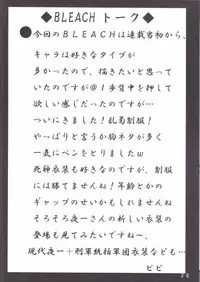 ◆BLEACHトーク◆
●今回のBLEACHは連載当初から、
キャラは好きなタイプが
多かったので、描きたいと思って
いたのですが@1歩背中を押して
欲しい感じだったのですが…
ついにきました!乱菊制服!
やっぱりと言うか胸ネタが多く
一気にペンをとりましたw
死神衣装も好きなのですが、制服
には勝てませんね!年齢とかの
ギャップのせいかもしれませんが
そろそろ夜一さんの新しい衣装の
登場も見てみたいですね~、
現代夜一+刑軍統括軍団衣装なども…
ビビ